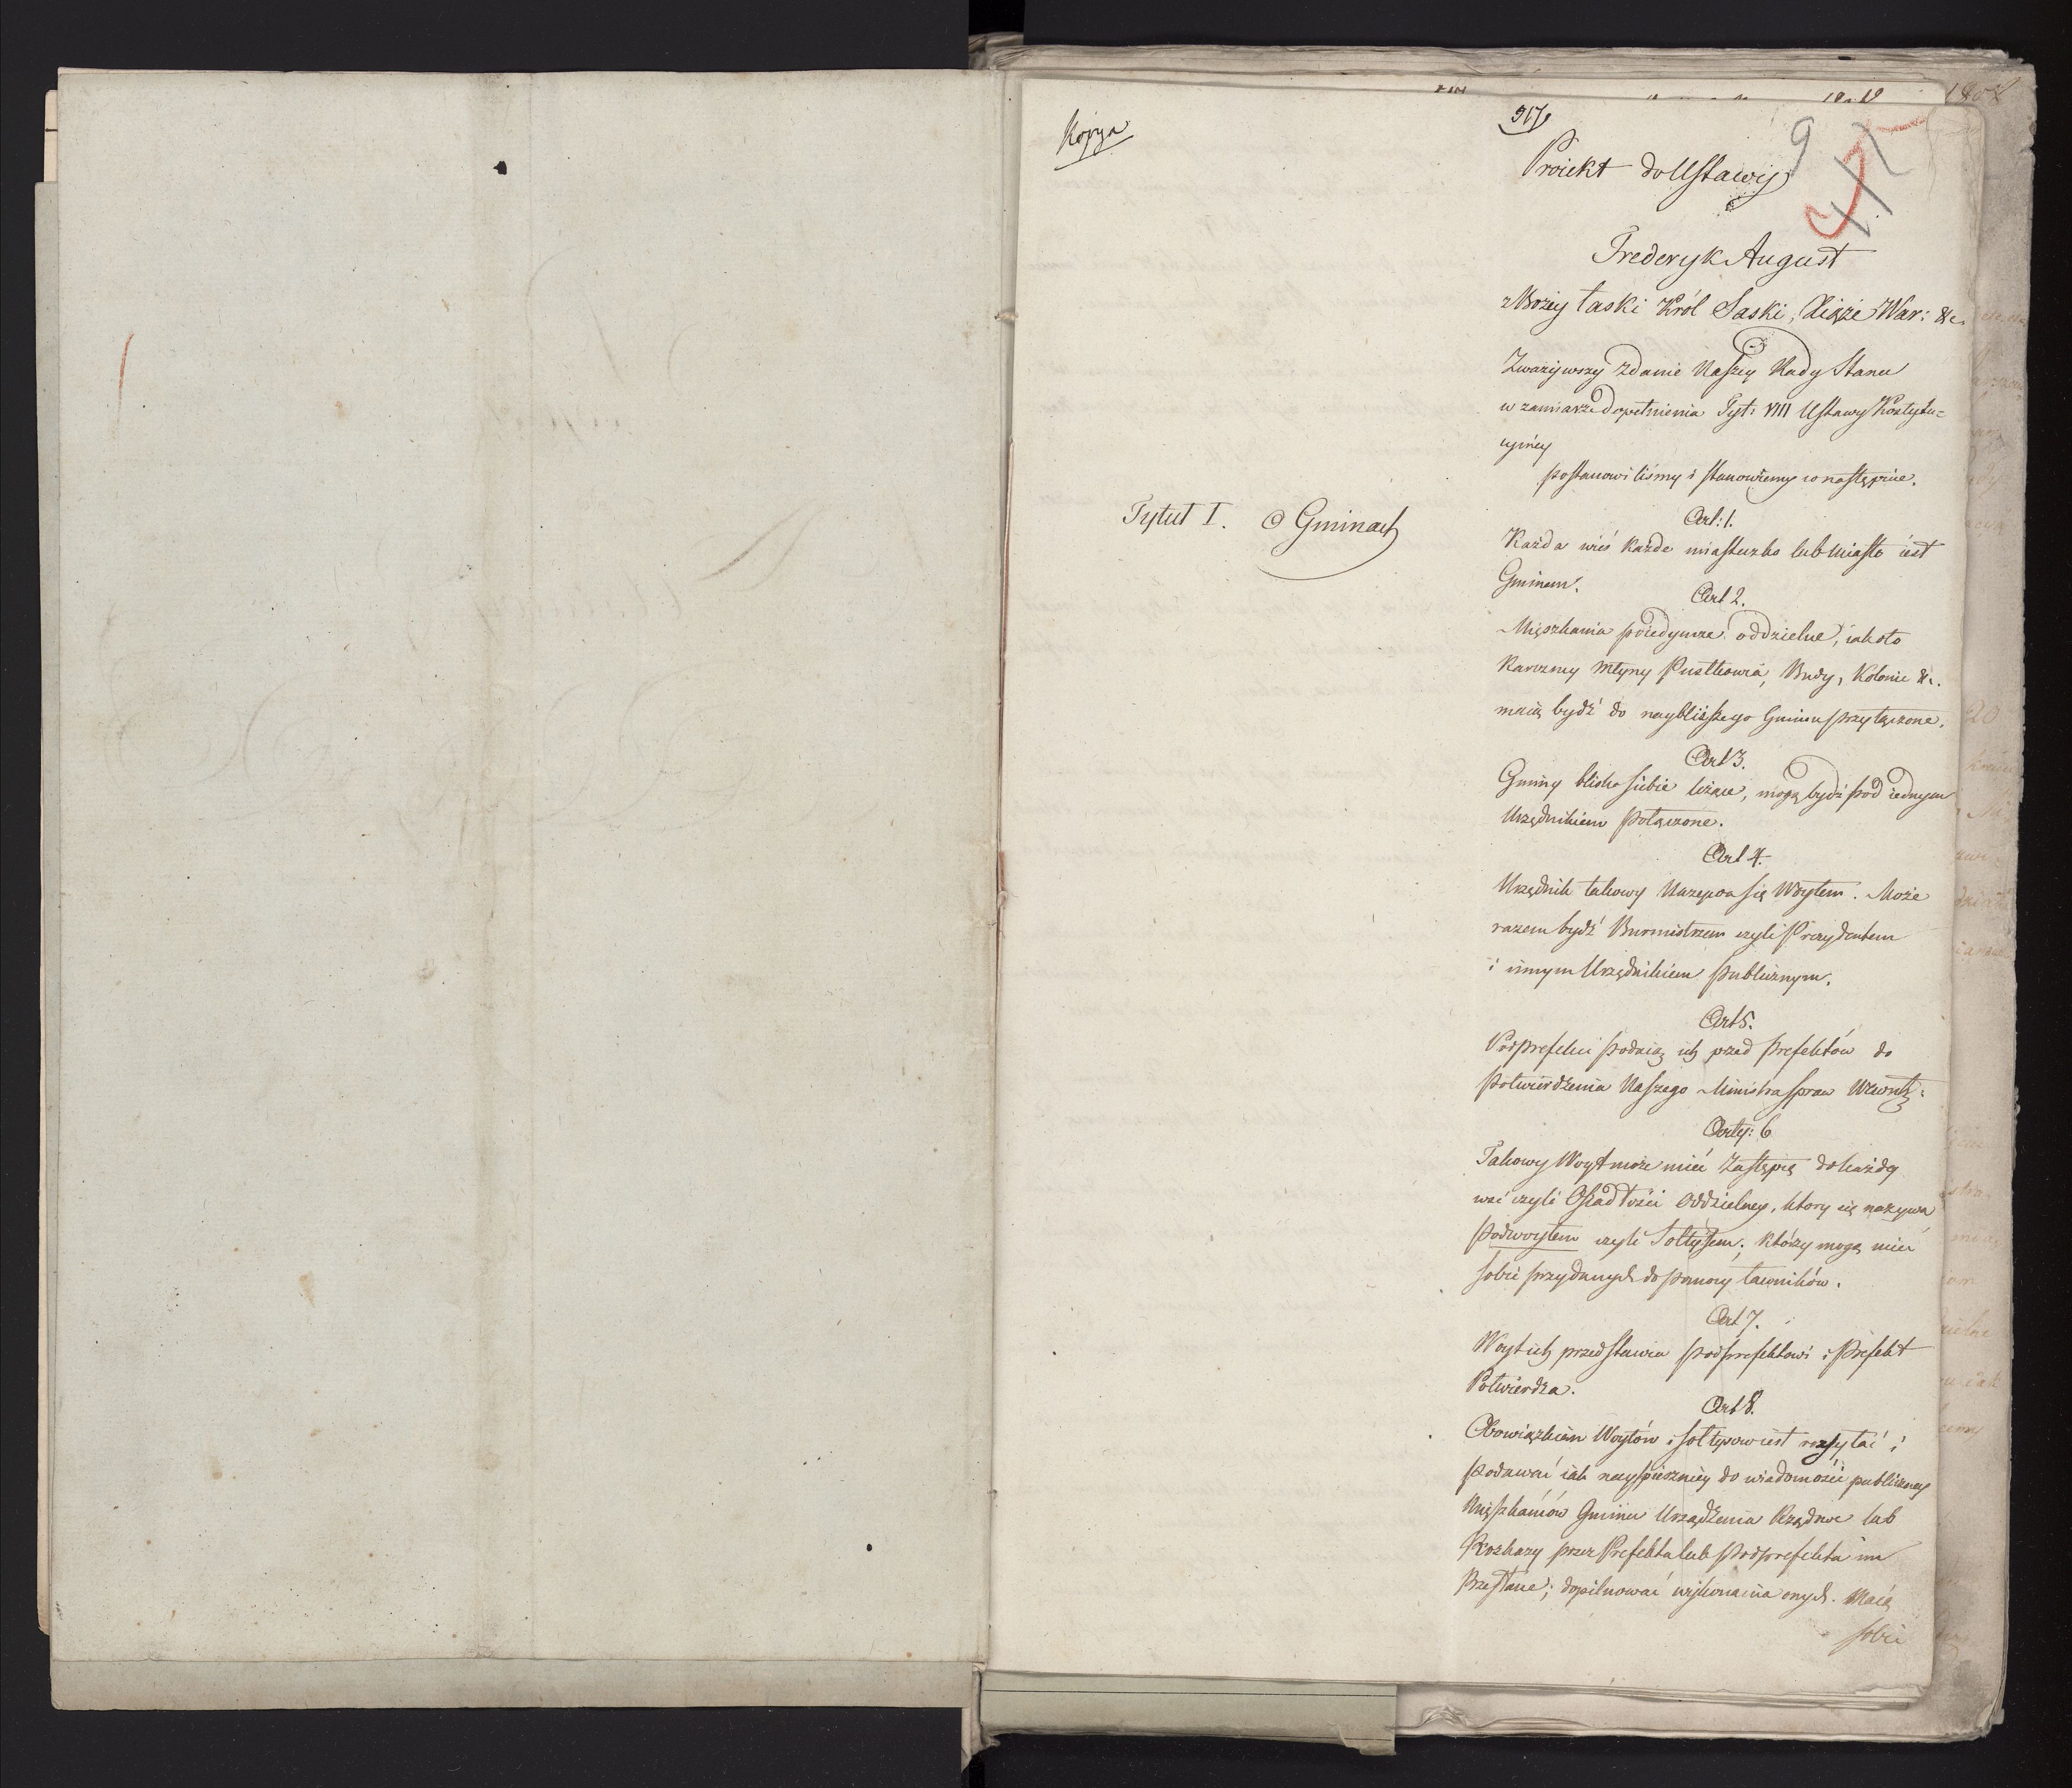 Kopya
317
9
Proiekt do Ustawy
Fryderyk August
z Bożey łaski Król Saski, Xiąże War: &c.
Zważywszy zdanie Naszey Rady Stanu
w zamiarze dopełnienia Tyt: VIII Ustawy Konstytu=
cyiney
postanowiliśmy i stanowiemy co następuie.
Tytuł I. O Gminach
Art: 1.
Każda wieś każde miasteczko lub miasto iest
Gminem.
Art 2.
Mięszkania poiedyncze oddzielne, iakoto
Karczmy Młyny Pustkowia, Budy, Kolonie &c.
maią bydź do naybliższego Gminu przyłączone.
Art 3.
Gminy blisko siebie leżące, mogą bydź pod iednym
Urzędnikiem połączone.
Art 4.
Urzędnik takowy Nazywa się Woytem. Może
razem bydź Burmistrzem czyli Prezydentem
i innym Urzędnikiem publicznym.
Art 5.
Podprefekci podaią ich przed Prefektów do
potwierdzenia Naszego Ministra spraw Wewnętz:
Arty: 6
Takowy Woyt może mieć Zastępcę do każdey
wsi czyli Osiadłości oddzielney, ktory się nazywa
Podwoytem czyli Sołtysem; którzy mogą mieć
sobie przydanych do pomocy ławników.
Art 7.
Woyt ich przedstawia podprefektowi i Prefekt
Potwierdza.
Art 8.
Obowiązkiem Woytów i sołtysow iest rozsyłać i
podawać iak nayspieszniey do wiadomości publiczney
Mięszkańców Gminu Urządzenia Rządowe lub
Rozkazy przez Prefekta lub podprefekta im
Przesłane; dopilnować wykonania onych. Maią
sobie